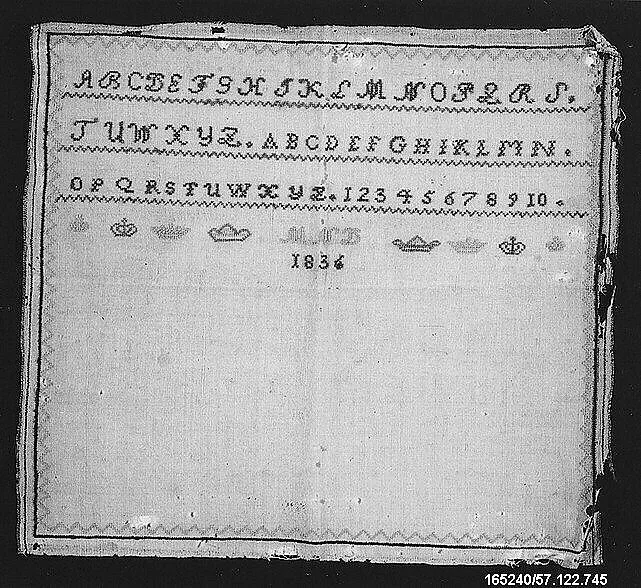 ABCDEFGHIKLMNOPQRS.
TUWXYZ. ABCDEFGHIKLMN.
OPQRSTUWXYZ. 12345678910.
1836
165240/57.122.745